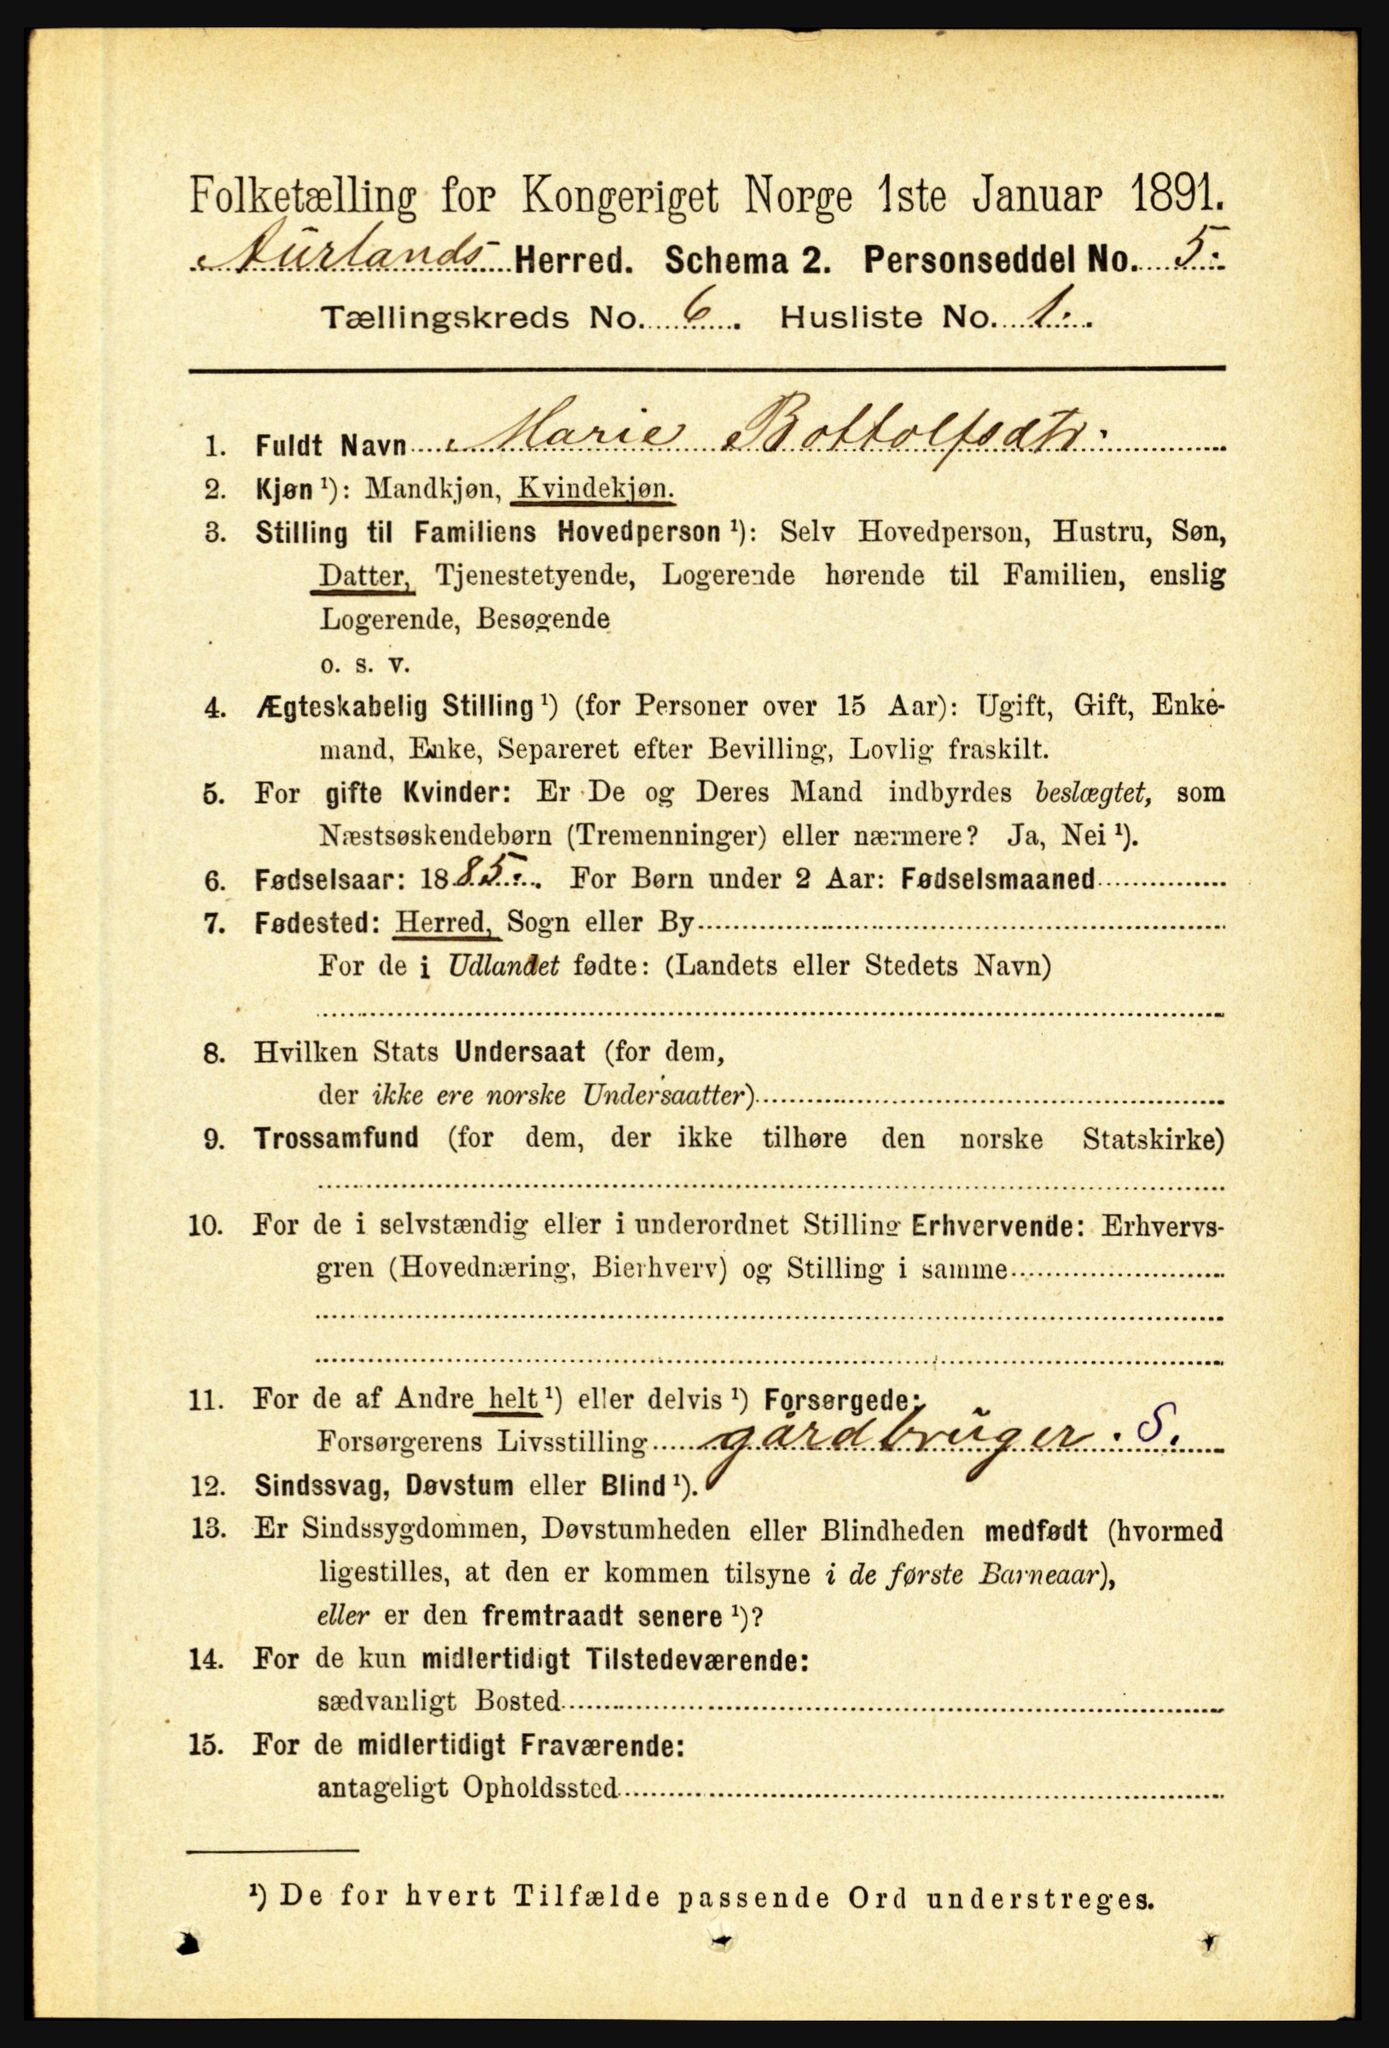 Folketælling for Kongeriget Norge 1ste Januar 1891.
Aurlands Herred. Schema 2. Personseddel No. 5.
Tællingskreds No. 6. Husliste No. 1.
1. Fuldt Navn Marie Bottolfsdtr.
2. Kjøn ¹): Mandkjøn, Kvindekjøn.
3. Stilling til Familiens Hovedperson ¹): Selv Hovedperson, Hustru, Søn,
Datter, Tjenestetyende, Logerende hørende til Familien, enslig
Logerende, Besøgende
o. s. v.
4. Ægteskabelig Stilling ¹) (for Personer over 15 Aar): Ugift, Gift, Enke-
mand, Enke, Separeret efter Bevilling, Lovlig fraskilt.
5. For gifte Kvinder: Er De og Deres Mand indbyrdes beslægtet, som
Næstsøskendebørn (Tremenninger) eller nærmere? Ja, Nei ¹).
6. Fødselsaar: 1885. For Børn under 2 Aar: Fødselsmaaned
7. Fødested: Herred, Sogn eller By
For de i Udlandet fødte: (Landets eller Stedets Navn)
8. Hvilken Stats Undersaat (for dem,
der ikke ere norske Undersaatter)
9. Trossamfund (for dem, der ikke tilhøre den norske Statskirke)
10. For de i selvstændig eller i underordnet Stilling Erhvervende: Erhvervs-
gren (Hovednæring, Bierhverv) og Stilling i samme
11. For de af Andre helt ¹) eller delvis ¹) Forsørgede:
Forsørgerens Livsstilling gårdbruger. S.
12. Sindssvag, Døvstum eller Blind ¹).
13. Er Sindssygdommen, Døvstumheden eller Blindheden medfødt (hvormed
ligestilles, at den er kommen tilsyne i de første Barneaar),
eller er den fremtraadt senere ¹)?
14. For de kun midlertidigt Tilstedeværende:
sædvanligt Bosted
15. For de midlertidigt Fraværende:
antageligt Opholdssted
¹) De for hvert Tilfælde passende Ord understreges.